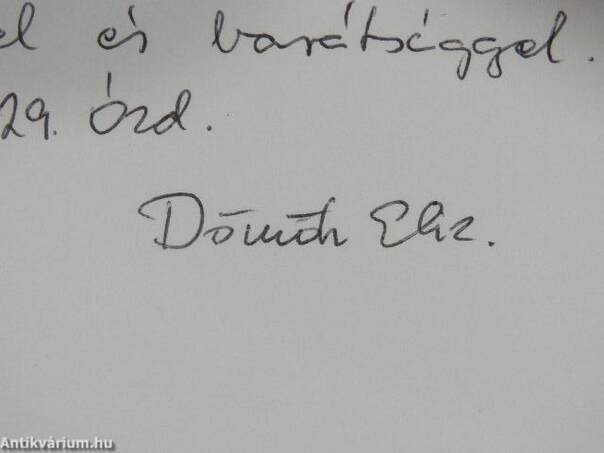 el és barátsággal.
29. Ózd.
Eliz.
Antikvárium.hu